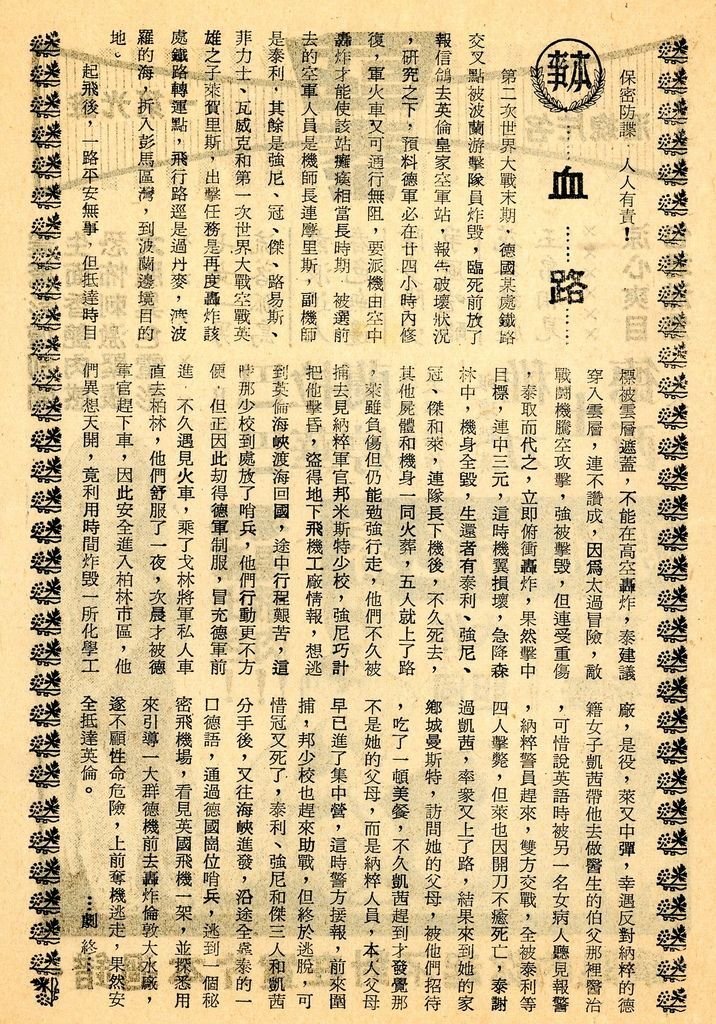 保密防諜　人人有責！
本事
……血……路……
第二次世界大戰末期，德國某處鐵路
交叉點被波蘭游擊隊員炸毀，臨死前放了
報信鴿去英倫皇家空軍站，報告破壞狀況
，研究之下，預料德軍必在廿四小時內修
復，軍火車又可通行無阻，要派機由空中
轟炸才能使該站癱瘓相當長時期　被選前
去的空軍人員是機師長連摩里斯，副機師
是泰利，其餘是強尼、冠、傑、路易斯、
菲力士、瓦威克和第一次世界大戰空戰英
雄之子萊賀里斯，出擊任務是再度轟炸該
處鐵路轉運點，飛行路逕是過丹麥，濟波
羅的海，折入彭馬區灣，到波蘭邊境目的
地。
起飛後，一路平安無事，但抵達時目
標被雲層遮蓋，不能在高空轟炸，泰建議
穿入雲層，連不讚成，因爲太過冒險，敵
戰鬪機騰空攻擊，強被擊毀，但連受重傷
，泰取而代之，立即俯衝轟炸，果然擊中
目標，連中三元，這時機翼損壞，急降森
林中，機身全毀，生還者有泰利、強尼、
冠、傑和萊，連隊長下機後，不久死去，
其他屍體和機身一同火葬，五人就上了路
，萊雖負傷但仍能勉強行走，他們不久被
捕去見納粹軍官邦米斯特少校，強尼巧計
把他擊昏，盜得地下飛機工廠情報，想逃
到英倫海峽渡海回國，途中行程艱苦，這
時那少校到處放了哨兵，他們行動更不方
便，但正因此刧得德軍制服，冒充德軍前
進，不久遇見火車，乘了戈林將軍私人車
直去柏林，他們舒服了一夜，次晨才被德
軍官趕下車，因此安全進入柏林市區，他
們異想天開，竟利用時間炸毀一所化學工
廠，是役，萊又中彈，幸遇反對納粹的德
籍女子凱茜帶他去做醫生的伯父那裡醫治
，可惜說英語時被另一名女病人聽見報警
，納粹警員趕來，雙方交戰，全被泰利等
四人擊斃，但萊也因開刀不癒死亡，泰謝
過凱茜，率衆又上了路，結果來到她的家
鄉城曼斯特，訪問她的父母，被他們招待
，吃了一頓美餐，不久凱茜趕到才發覺那
不是她的父母，而是納粹人員，本人父母
早已進了集中營，這時警方接報，前來圍
捕，邦少校也趕來助戰，但終於逃脫，可
惜冠又死了，泰利、強尼和傑三人和凱茜
分手後，又往海峽進發，沿途全靠泰的一
口德語，通過德國崗位哨兵，逃到一個秘
密飛機場，看見英國飛機一架，並探悉用
來引導一大群德機前去轟炸倫敦大水廠，
遂不顧性命危險，上前奪機逃走，果然安
全抵達英倫。
…劇　終…